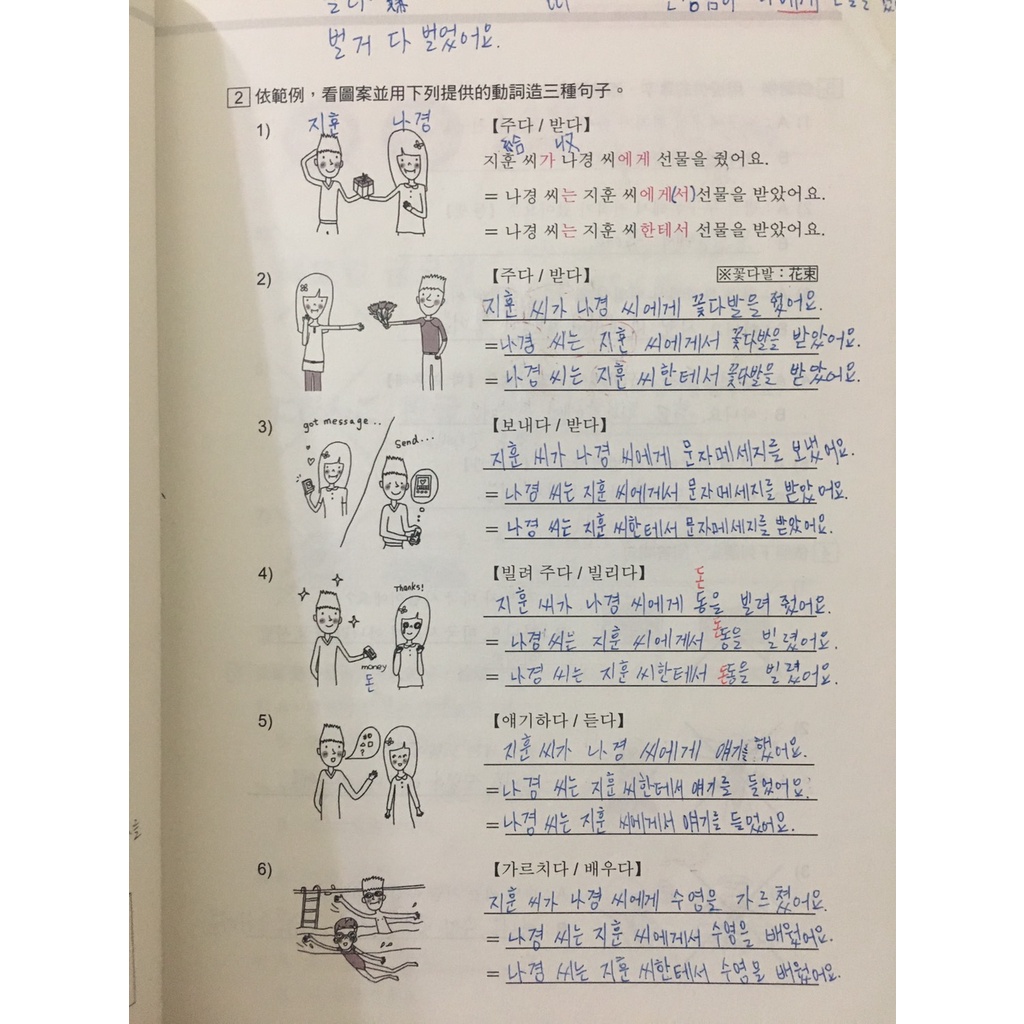 벌거 다 벌었어요.
2 依範例，看圖案並用下列提供的動詞造三種句子。
1) 지훈 나경 【주다 / 받다】
給 收
지훈 씨가 나경 씨에게 선물을 줬어요.
= 나경 씨는 지훈 씨에게(서)선물을 받았어요.
= 나경 씨는 지훈 씨한테서 선물을 받았어요.
2) 【주다 / 받다】 ※꽃다발：花束
지훈 씨가 나경 씨에게 꽃다발을 줬어요.
= 나경 씨는 지훈 씨에게서 꽃다발을 받았어요.
= 나경 씨는 지훈 씨한테서 꽃다발을 받았어요.
3) got message.. 【보내다 / 받다】
Send...
지훈 씨가 나경 씨에게 문자메세지를 보냈어요.
= 나경 씨는 지훈 씨에게서 문자메세지를 받았어요.
= 나경 씨는 지훈 씨한테서 문자메세지를 받았어요.
4) 【빌려 주다 / 빌리다】
Thanks!
돈
지훈 씨가 나경 씨에게 동을 빌려 줬어요.
돈
= 나경 씨는 지훈 씨에게서 동을 빌렸어요.
money
돈
= 나경 씨는 지훈 씨한테서 돈동을 빌렸어요.
5) 【얘기하다 / 듣다】
지훈 씨가 나경 씨에게 얘기를 했어요.
= 나경 씨는 지훈 씨한테서 얘기를 들었어요.
= 나경 씨는 지훈 씨에게서 얘기를 들었어요.
6) 【가르치다 / 배우다】
지훈 씨가 나경 씨에게 수영을 가르쳤어요.
= 나경 씨는 지훈 씨에게서 수영을 배웠어요.
= 나경 씨는 지훈 씨한테서 수영을 배웠어요.